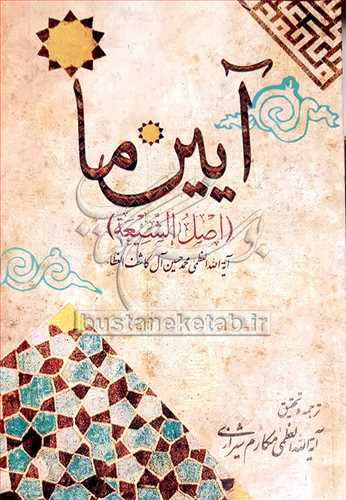 آیین ما
(اصل الشیعة)
آیة الله العظمی محمد حسین آل کاشف الغطا
bustaneketab.ir
ترجمه و تحقیق
آیة الله العظمی مکارم شیرازی